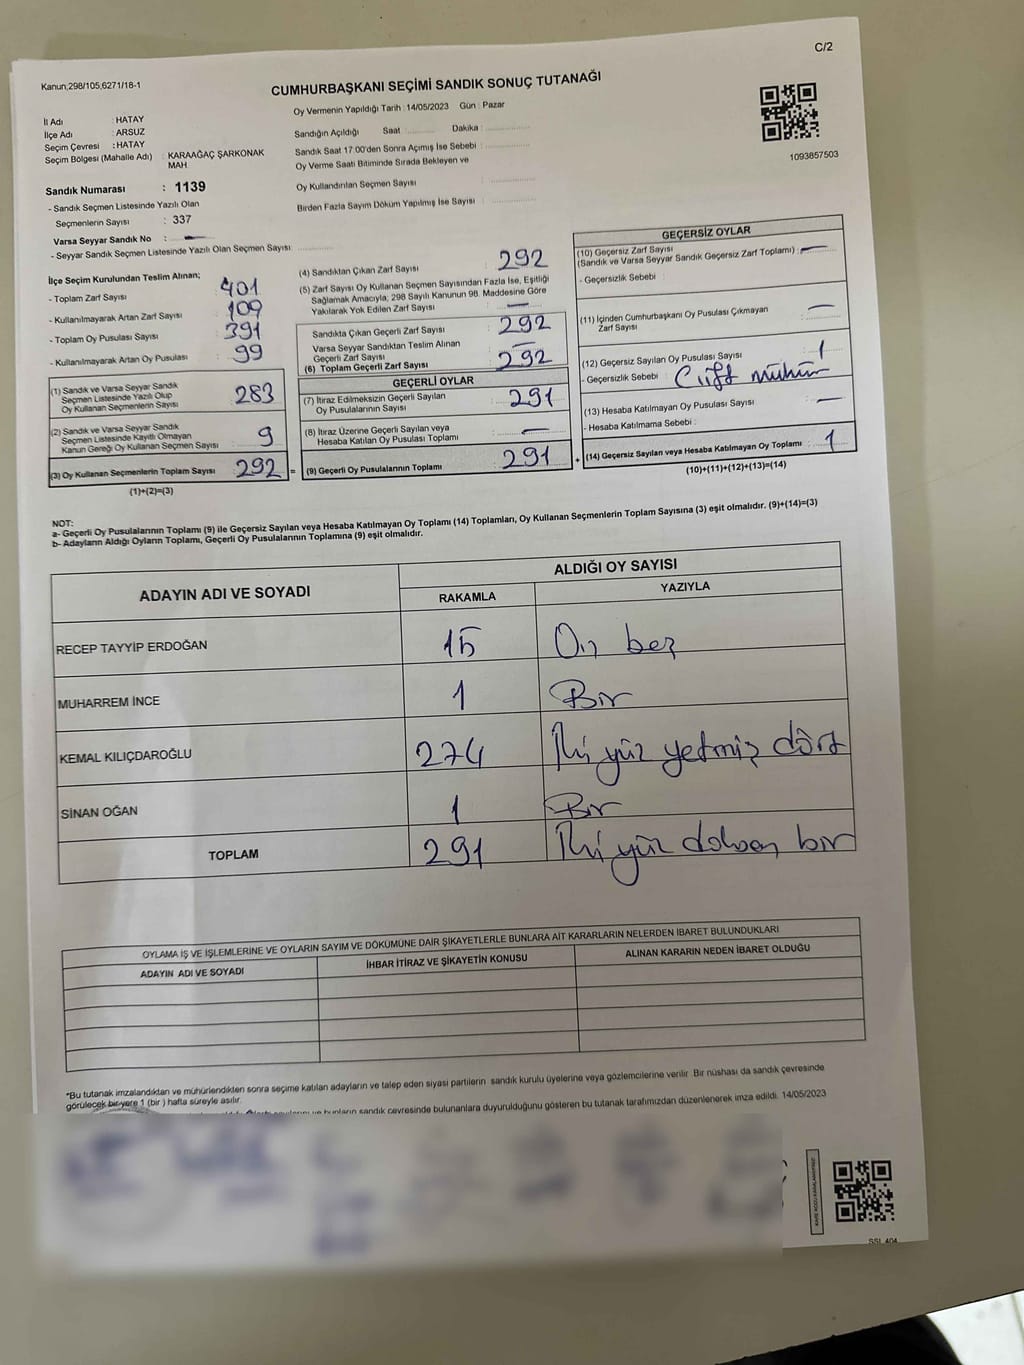 C/2
Kanun,298/105,6271/18-1
CUMHURBAŞKANI SEÇİMİ SANDIK SONUÇ TUTANAĞI
İl Adı : HATAY
İlçe Adı : ARSUZ
Seçim Çevresi : HATAY
Seçim Bölgesi (Mahalle Adı) : KARAAĞAÇ ŞARKONAK MAH
Sandık Numarası : 1139
- Sandık Seçmen Listesinde Yazılı Olan
Seçmenlerin Sayısı : 337
Varsa Seyyar Sandık No : —
- Seyyar Sandık Seçmen Listesinde Yazılı Olan Seçmen Sayısı:
Oy Vermenin Yapıldığı Tarih : 14/05/2023 Gün : Pazar
Sandığın Açıldığı Saat Dakika :
Sandık Saat 17:00'den Sonra Açımış İse Sebebi :
Oy Verme Saati Bitiminde Sırada Bekleyen ve
Oy Kullandırılan Seçmen Sayısı :
Birden Fazla Sayım Döküm Yapılmış İse Sayısı :
1093857503
İlçe Seçim Kurulundan Teslim Alınan;
- Toplam Zarf Sayısı : 401
- Kullanılmayarak Artan Zarf Sayısı : 109
- Toplam Oy Pusulası Sayısı : 391
- Kullanılmayarak Artan Oy Pusulası : 99
(1) Sandık ve Varsa Seyyar Sandık
Seçmen Listesinde Yazılı Olup
Oy Kullanan Seçmenlerin Sayısı : 283
(2) Sandık ve Varsa Seyyar Sandık
Seçmen Listesinde Kayıtlı Olmayan
Kanun Gereği Oy Kullanan Seçmen Sayısı : 9
(3) Oy Kullanan Seçmenlerin Toplam Sayısı : 292 =
(1)+(2)=(3)
(4) Sandıktan Çıkan Zarf Sayısı : 292
(5) Zarf Sayısı Oy Kullanan Seçmen Sayısından Fazla İse, Eşitliği
Sağlamak Amacıyla; 298 Sayılı Kanunun 98. Maddesine Göre
Yakılarak Yok Edilen Zarf Sayısı : —
Sandıkta Çıkan Geçerli Zarf Sayısı : 292
Varsa Seyyar Sandıktan Teslim Alınan
Geçerli Zarf Sayısı : —
(6) Toplam Geçerli Zarf Sayısı : 292
GEÇERLİ OYLAR
(7) İtiraz Edilmeksizin Geçerli Sayılan
Oy Pusulalarının Sayısı : 291
(8) İtiraz Üzerine Geçerli Sayılan veya
Hesaba Katılan Oy Pusulası Toplamı : —
(9) Geçerli Oy Pusulalarının Toplamı : 291 +
GEÇERSİZ OYLAR
(10) Geçersiz Zarf Sayısı
(Sandık ve Varsa Seyyar Sandık Geçersiz Zarf Toplamı) : —
- Geçersizlik Sebebi :
(11) İçinden Cumhurbaşkanı Oy Pusulası Çıkmayan
Zarf Sayısı : —
(12) Geçersiz Sayılan Oy Pusulası Sayısı : 1
- Geçersizlik Sebebi : Çift mühür
(13) Hesaba Katılmayan Oy Pusulası Sayısı : —
- Hesaba Katılmama Sebebi :
(14) Geçersiz Sayılan veya Hesaba Katılmayan Oy Toplamı : 1
(10)+(11)+(12)+(13)=(14)
NOT:
a- Geçerli Oy Pusulalarının Toplamı (9) ile Geçersiz Sayılan veya Hesaba Katılmayan Oy Toplamı (14) Toplamları, Oy Kullanan Seçmenlerin Toplam Sayısına (3) eşit olmalıdır. (9)+(14)=(3)
b- Adayların Aldığı Oyların Toplamı, Geçerli Oy Pusulalarının Toplamına (9) eşit olmalıdır.
ADAYIN ADI VE SOYADI ALDIĞI OY SAYISI
RAKAMLA YAZIYLA
RECEP TAYYİP ERDOĞAN 15 On beş
MUHARREM İNCE 1 Bir
KEMAL KILIÇDAROĞLU 274 İki yüz yetmiş dört
SİNAN OĞAN 1 Bir
TOPLAM 291 İki yüz doksan bir
OYLAMA İŞ VE İŞLEMLERİNE VE OYLARIN SAYIM VE DÖKÜMÜNE DAİR ŞİKAYETLERLE BUNLARA AİT KARARLARIN NELERDEN İBARET BULUNDUKLARI
ADAYIN ADI VE SOYADI İHBAR İTİRAZ VE ŞİKAYETİN KONUSU ALINAN KARARIN NEDEN İBARET OLDUĞU
*Bu tutanak imzalandıktan ve mühürlendikten sonra seçime katılan adayların ve talep eden siyasi partilerin sandık kurulu üyelerine veya gözlemcilerine verilir. Bir nüshası da sandık çevresinde
görülecek bir yere 1 (bir ) hafta süreyle asılır.
ve bunların sandık çevresinde bulunanlara duyurulduğunu gösteren bu tutanak tarafımızdan düzenlenerek imza edildi. 14/05/2023